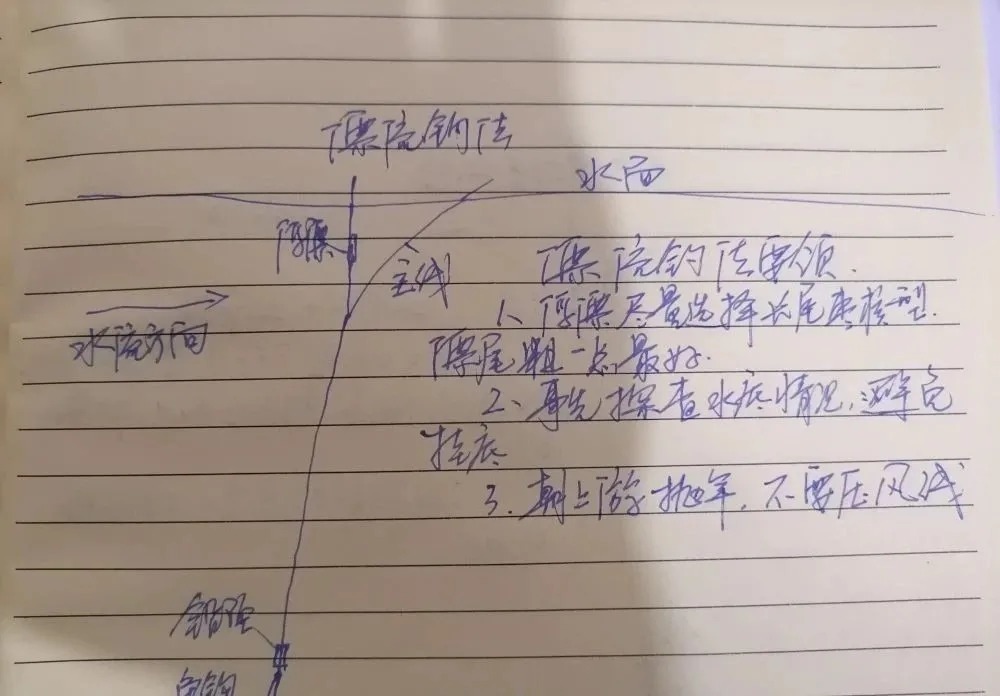 漂流钓法
水面
浮漂
主线
水流方向
漂流钓法要领.
1、浮漂尽量选择长尾枣核型.
漂尾粗一点最好.
2、事先探查水底情况,避免
挂底
3.朝上游抛竿,不要压风线
铅坠
鱼钩